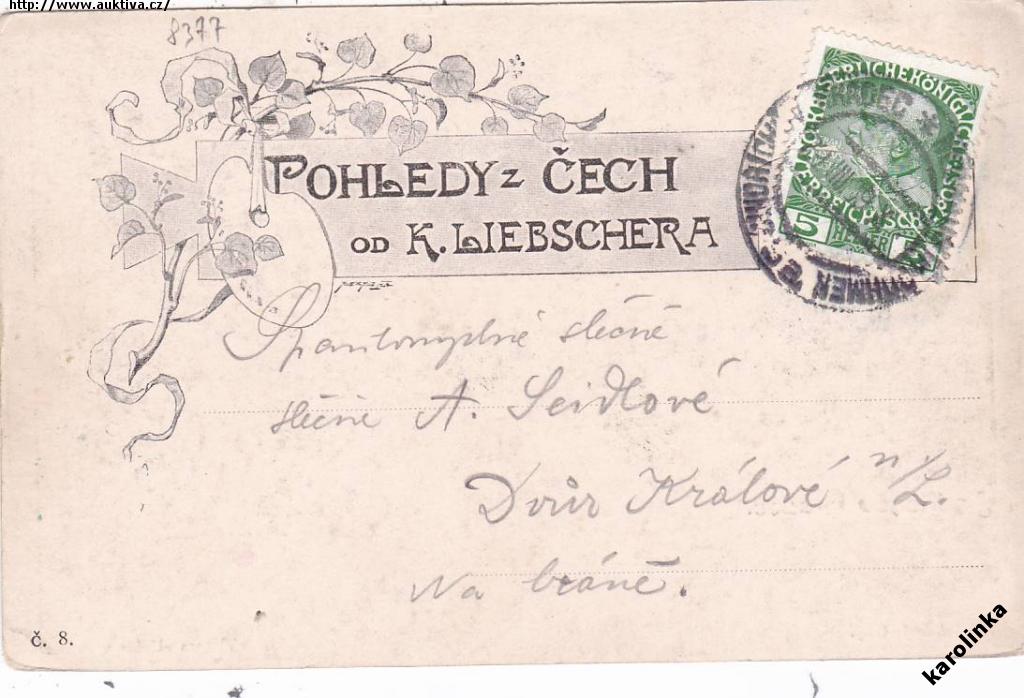 http://www.auktiva.cz/
8377
POHLEDY z ČECH
OD K. LIEBSCHERA
KAISERLICHE KÖNIGLICHE
ÖSTERREICHISCHE
5
HELLER
slečně
slečně A. Seidlové
Dvůr Králové n/L.
Na bráně.
č. 8.
karolinka